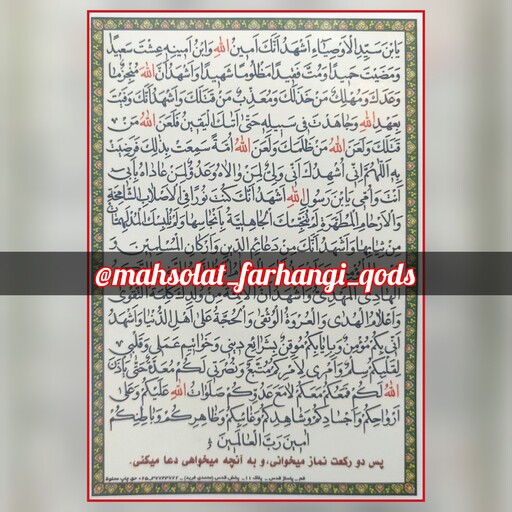 يَابْنَ سَيِّدِ الْاَوْصِيَاءِ اَشْهَدُ اَنَّكَ اَمِينُ اللهِ وَابْنُ اَمِينِهِ عِشْتَ سَعِيدًا
وَمَضَيْتَ حَمِيدًا وَمُتَّ فَقِيدًا مَظْلُومًا شَهِيدًا وَاَشْهَدُ اَنَّ اللهَ مُنْجِزٌ مَا
وَعَدَكَ وَمُهْلِكٌ مَنْ خَذَلَكَ وَمُعَذِّبٌ مَنْ قَتَلَكَ وَاَشْهَدُ اَنَّكَ وَفَيْتَ
بِعَهْدِ اللهِ وَجَاهَدْتَ فِي سَبِيلِهِ حَتَّى اَتَاكَ الْيَقِينُ فَلَعَنَ اللهُ مَنْ
قَتَلَكَ وَلَعَنَ اللهُ مَنْ ظَلَمَكَ وَلَعَنَ اللهُ اُمَّةً سَمِعَتْ بِذٰلِكَ فَرَضِيَتْ
بِهِ اَللّٰهُمَّ اِنِّي اُشْهِدُكَ اَنِّي وَلِيٌّ لِمَنْ وَالَاهُ وَعَدُوٌّ لِمَنْ عَادَاهُ بِاَبِي
اَنْتَ وَاُمِّي يَابْنَ رَسُولِ اللهِ اَشْهَدُ اَنَّكَ كُنْتَ نُورًا فِي الْاَصْلَابِ الشَّامِخَةِ
وَالْاَرْحَامِ الْمُطَهَّرَةِ لَمْ تُنَجِّسْكَ الْجَاهِلِيَّةُ بِاَنْجَاسِهَا وَلَمْ تُلْبِسْكَ الْمُدْلَهِمَّاتُ
مِنْ ثِيَابِهَا وَاَشْهَدُ اَنَّكَ مِنْ دَعَائِمِ الدِّينِ وَاَرْكَانِ الْمُسْلِمِينَ
@mahsolat_farhangi_qods
الْهَادِي الْمَهْدِيُّ وَاَشْهَدُ اَنَّ الْاَئِمَّةَ مِنْ وُلْدِكَ كَلِمَةُ التَّقْوٰى
وَاَعْلَامُ الْهُدٰى وَالْعُرْوَةُ الْوُثْقٰى وَالْحُجَّةُ عَلٰى اَهْلِ الدُّنْيَا وَاَشْهَدُ
اَنِّي بِكُمْ مُؤْمِنٌ وَبِاِيَابِكُمْ مُوقِنٌ بِشَرَايِعِ دِينِي وَخَوَاتِيمِ عَمَلِي وَقَلْبِي
لِقَلْبِكُمْ سِلْمٌ وَاَمْرِي لِاَمْرِكُمْ مُتَّبِعٌ وَنُصْرَتِي لَكُمْ مُعَدَّةٌ حَتَّى يَأْذَنَ
اللهُ لَكُمْ فَمَعَكُمْ مَعَكُمْ لَا مَعَ عَدُوِّكُمْ صَلَوَاتُ اللهِ عَلَيْكُمْ وَعَلٰى
اَرْوَاحِكُمْ وَاَجْسَادِكُمْ وَشَاهِدِكُمْ وَغَائِبِكُمْ وَظَاهِرِكُمْ وَبَاطِنِكُمْ
اٰمِينَ رَبَّ الْعَالَمِينَ
پس دو رکعت نماز میخوانی، و به آنچه میخواهی دعا میکنی.